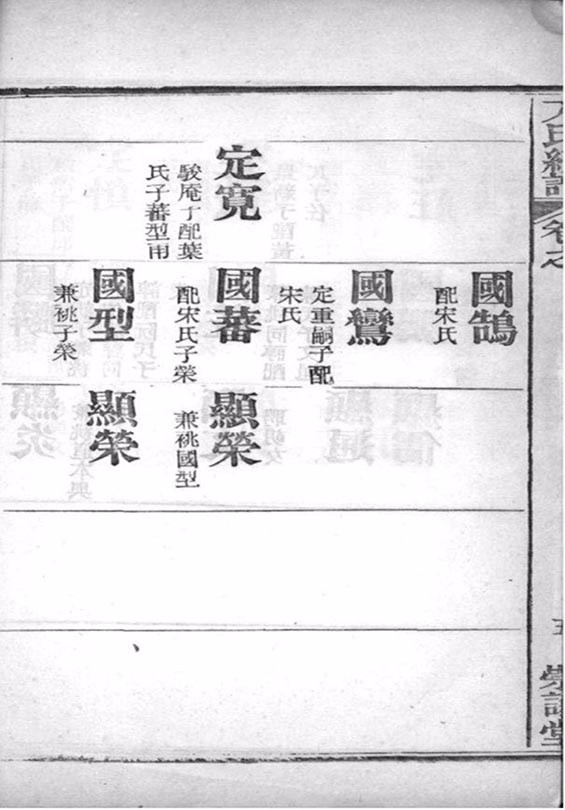 卷之
定寬
駿庵子配葉
氏子蕃型
國鵠
配宋氏
國鸞
定重嗣子配
宋氏
國蕃
配宋氏子榮
國型
兼祧子榮
顯榮
兼祧國型
顯榮